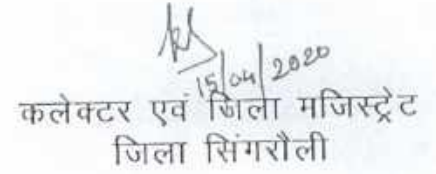 15/04/2020
कलेक्टर एवं जिला मजिस्ट्रेट
जिला सिंगरौली